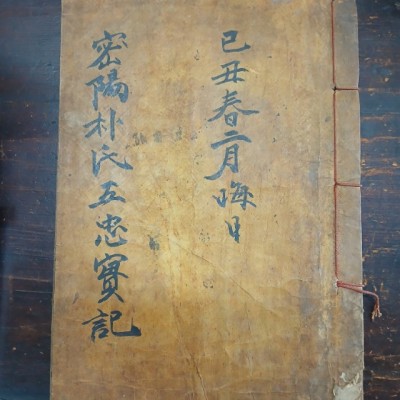 己丑春二月晦日
密陽朴氏五忠實記